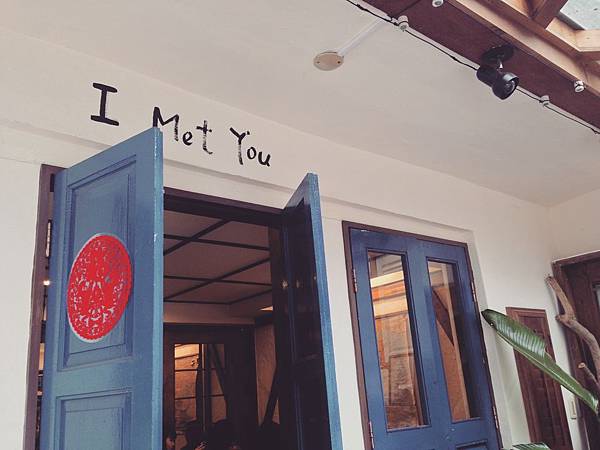 I Met You